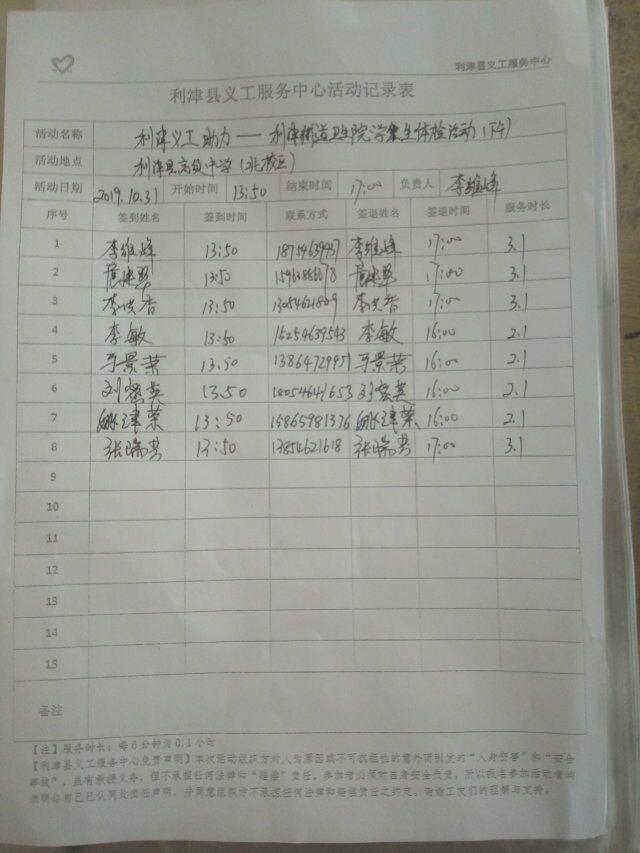 利津县义工服务中心
利津县义工服务中心活动记录表
活动名称 利津义工助力——利津街道卫生院学生体检活动(下午)
活动地点 利津县高级中学(北校区)
活动日期 2019.10.31 开始时间 13:50 结束时间 17:00 负责人 李维峰
序号 签到姓名 签到时间 联系方式 签退姓名 签退时间 服务时长
1 李维峰 13:50 李维峰 17:00 3.1
2 13:50 17:00 3.1
3 13:50 17:00 3.1
4 李敏 13:50 15254639543 李敏 16:00 2.1
5 于景荣 13:50 13864729951 于景荣 16:00 2.1
6 13:50 18054641653 16:00 2.1
7 姚津荣 13:50 15865981376 姚津荣 16:00 2.1
8 13:50 13854621618 17:00 3.1
9
10
11
12
13
14
15
备注
【注】服务时长:每6分钟为0.1小时
【利津县义工服务中心免责声明】本次活动组织方对人为原因或不可抗拒性的意外而引发的“人身伤害”和“安全
事故”,虽有救援义务,但不承担任何法律和“赔偿”责任。参加者必须对自身安全负责,所以报名参加活动者均
表明你自己已认同此责任声明,并同意组织方不承担任何法律和赔偿责任之约定。谢谢工友们的理解与支持。